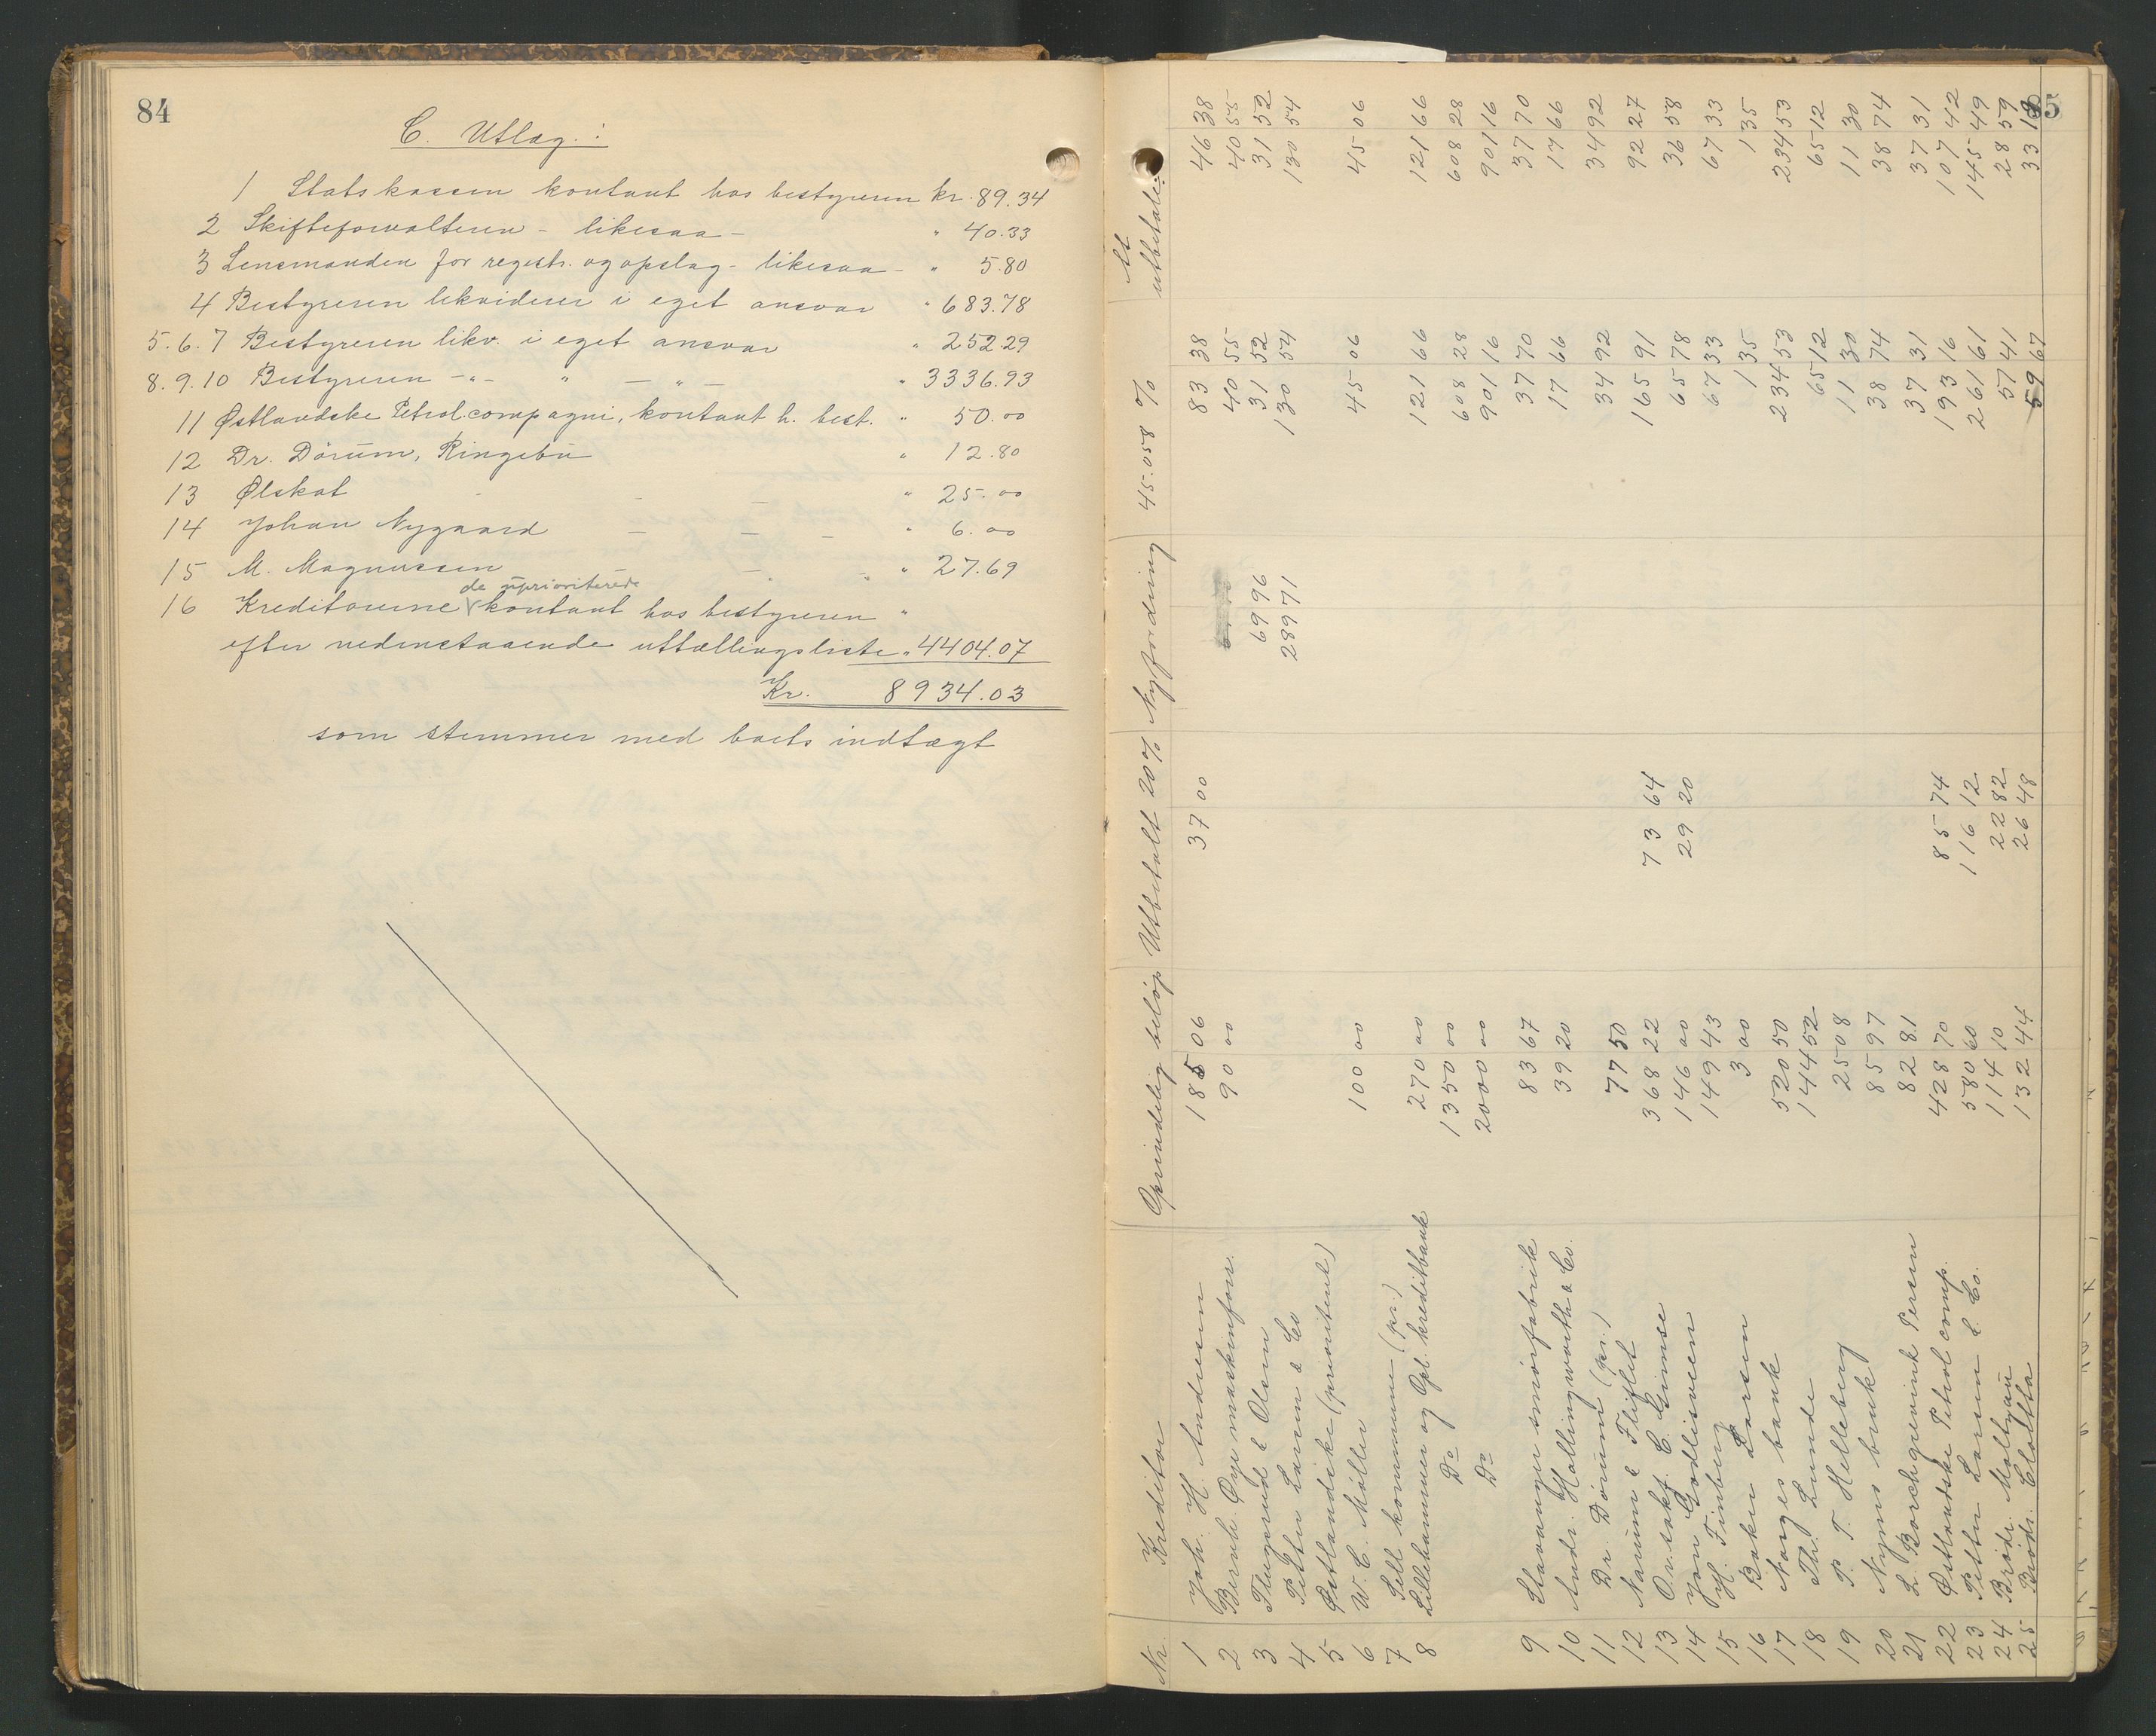 84
C. Utlæg:
1 Statskassen kontant hos bestyreren kr. 89.34
2 Skifteforvalteren - likesaa - " 40.33
3 Lensmanden for registr. og opslag - likesaa - " 5.80
4 Bestyreren likviderer i eget ansvar " 683.78
5.6.7 Bestyreren likv. i eget ansvar " 252.29
8.9.10 Bestyreren - " - " - " - " 3336.93
11 Østlandske Petrol.compagni, kontant h. best. " 50.00
12 Dr. Dörum, Ringebu " 12.80
13 Ølskat - - - " 25.00
14 Johan Nygaard - - - " 6.00
15 M. Magnussen - " " " 27.69
de uprioriterede
16 Kreditorerne kontant hos bestyreren "
efter nedenstaaende uttællingsliste " 4404.07
Kr. 8934.03
som stemmer med boets indtægt
85
Nr. Kreditor Oprindelig beløp Utbetalt 20% Nyfordring 45.058 % At utbetale
1 Joh. H. Andresen 185 06 37 00 83 38 46 38
2 Bernh. Øye maskinforr. 90 00 40 55 40 55
3 Flugsrud & Olsen 69 96 31 52 31 52
4 Petter Larsen & Co 289 71 130 54 130 54
5 Østlandske (prioritert)
6 W. C. Möller 100 00 45 06 45 06
7 Sell kommune (pr.)
8 Lillehammer og Opl. kreditbank 270 00 121 66 121 66
Do 1350 00 608 28 608 28
Do 2000 00 901 16 901 16
9 Stavanger smörfabrik 83 67 37 70 37 70
10 Andr. Hollingworth & Co. 39 20 17 66 17 66
11 Dr. Dörum (pr.) 77 50 34 92 34 92
12 Narum & Fliflet 368 22 73 64 165 91 92 27
13 O.r.sakf. C. Gimse 146 00 29 20 65 78 36 58
14 Jon Godlisveen 149 43 67 33 67 33
15 H. Finborg 3 00 1 35 1 35
16 Baker Larsen
17 Norges bank 520 50 234 53 234 53
18 Th. Lunde 144 52 65 12 65 12
19 P. T. Helleberg 25 08 11 30 11 30
20 Nyms bruk 85 97 38 74 38 74
21 L. Borchgrevink Persen 82 81 37 31 37 31
22 Østlandske Petrol comp. 428 70 85 74 193 16 107 42
23 Petter Larsen & Co. 580 60 116 12 261 61 145 49
24 Brödr. Moltzau 114 10 22 82 51 41 28 59
25 Brödr. Cloëtta 132 44 26 48 59 67 33 19